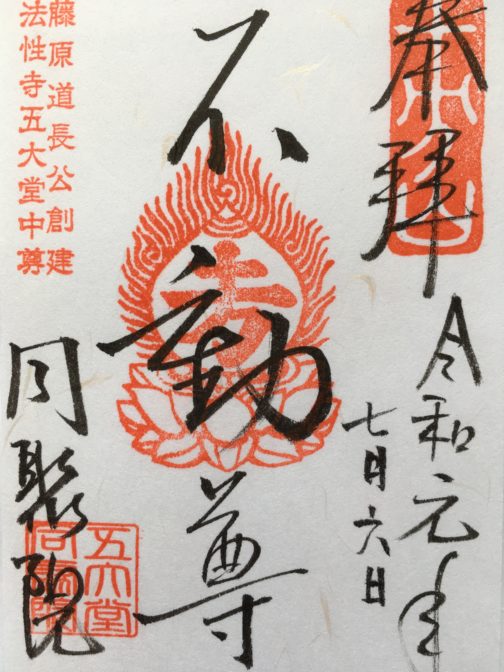 奉拝
令和元年
七月六日
不動尊
藤原道長公創建
法性寺五大堂中尊
同聚院
五大堂
同聚院